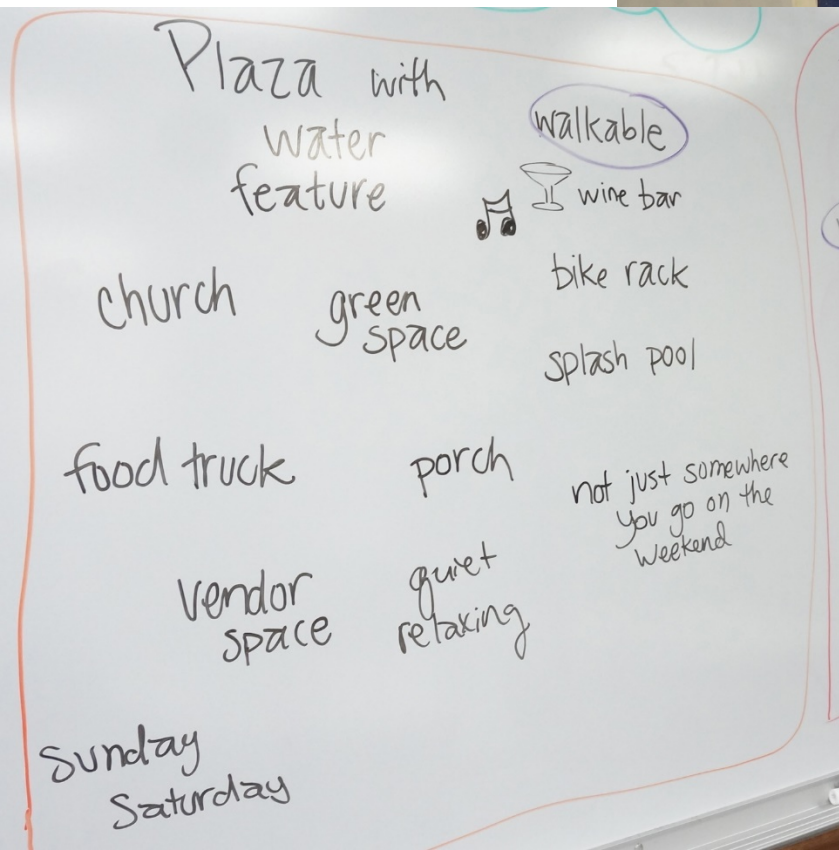 Plaza with
water
feature
walkable
wine bar
bike rack
splash pool
church
green
space
food truck
porch
not just somewhere
you go on the
weekend
vendor
space
quiet
relaxing
Sunday
Saturday